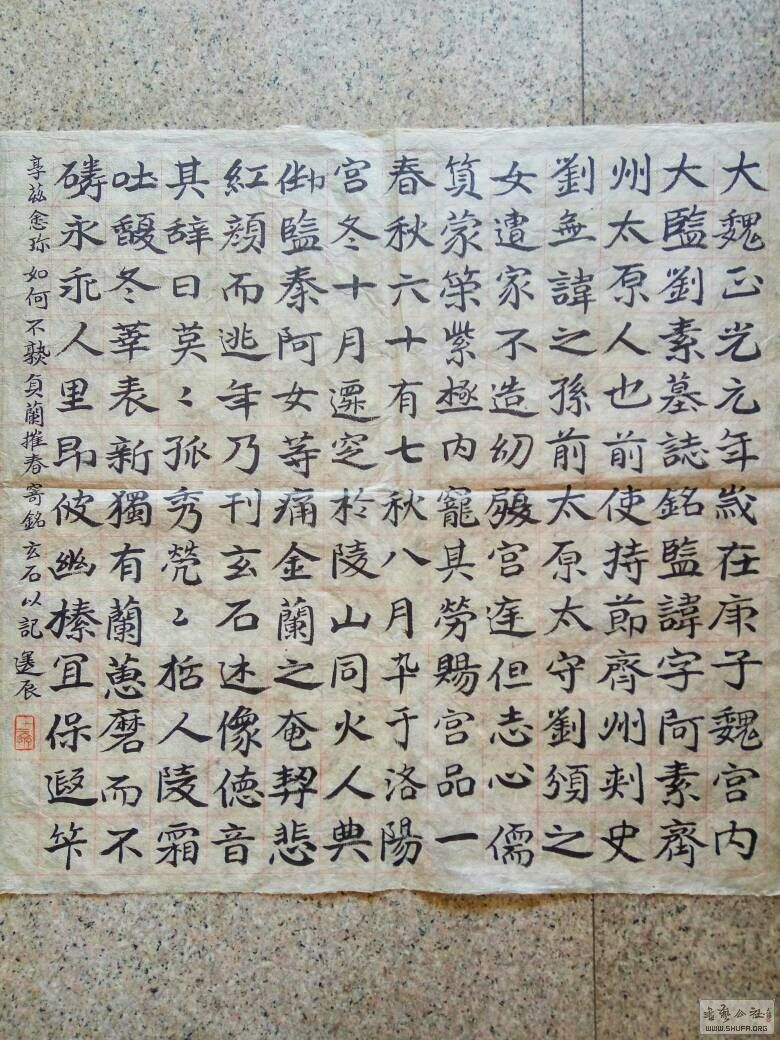 大魏正光元年歲在庚子魏宮内
大監劉素墓誌銘監諱字阿素齊
州太原人也前使持節齊州刾史
劉無諱之孫前太原太守劉頒之
女遭家不造幼履宮庭但志心儒
質蒙策紫極内寵其勞賜宮品一
春秋六十有七秋八月卒于洛陽
宮冬十月遷窆於陵山同火人典
御監秦阿女等痛金蘭之奄契悲
紅顔而逃年乃刊玄石述像德音
其辭曰莫〻孤秀茕〻括人陵霜
吐馥冬華表新獨有蘭蕙磨而不
磷永乖人里即彼幽榛宜保遐年
享茲愈珎如何不孰貞蘭摧春寄銘玄石以記 選辰
WWW.SHUFA.ORG